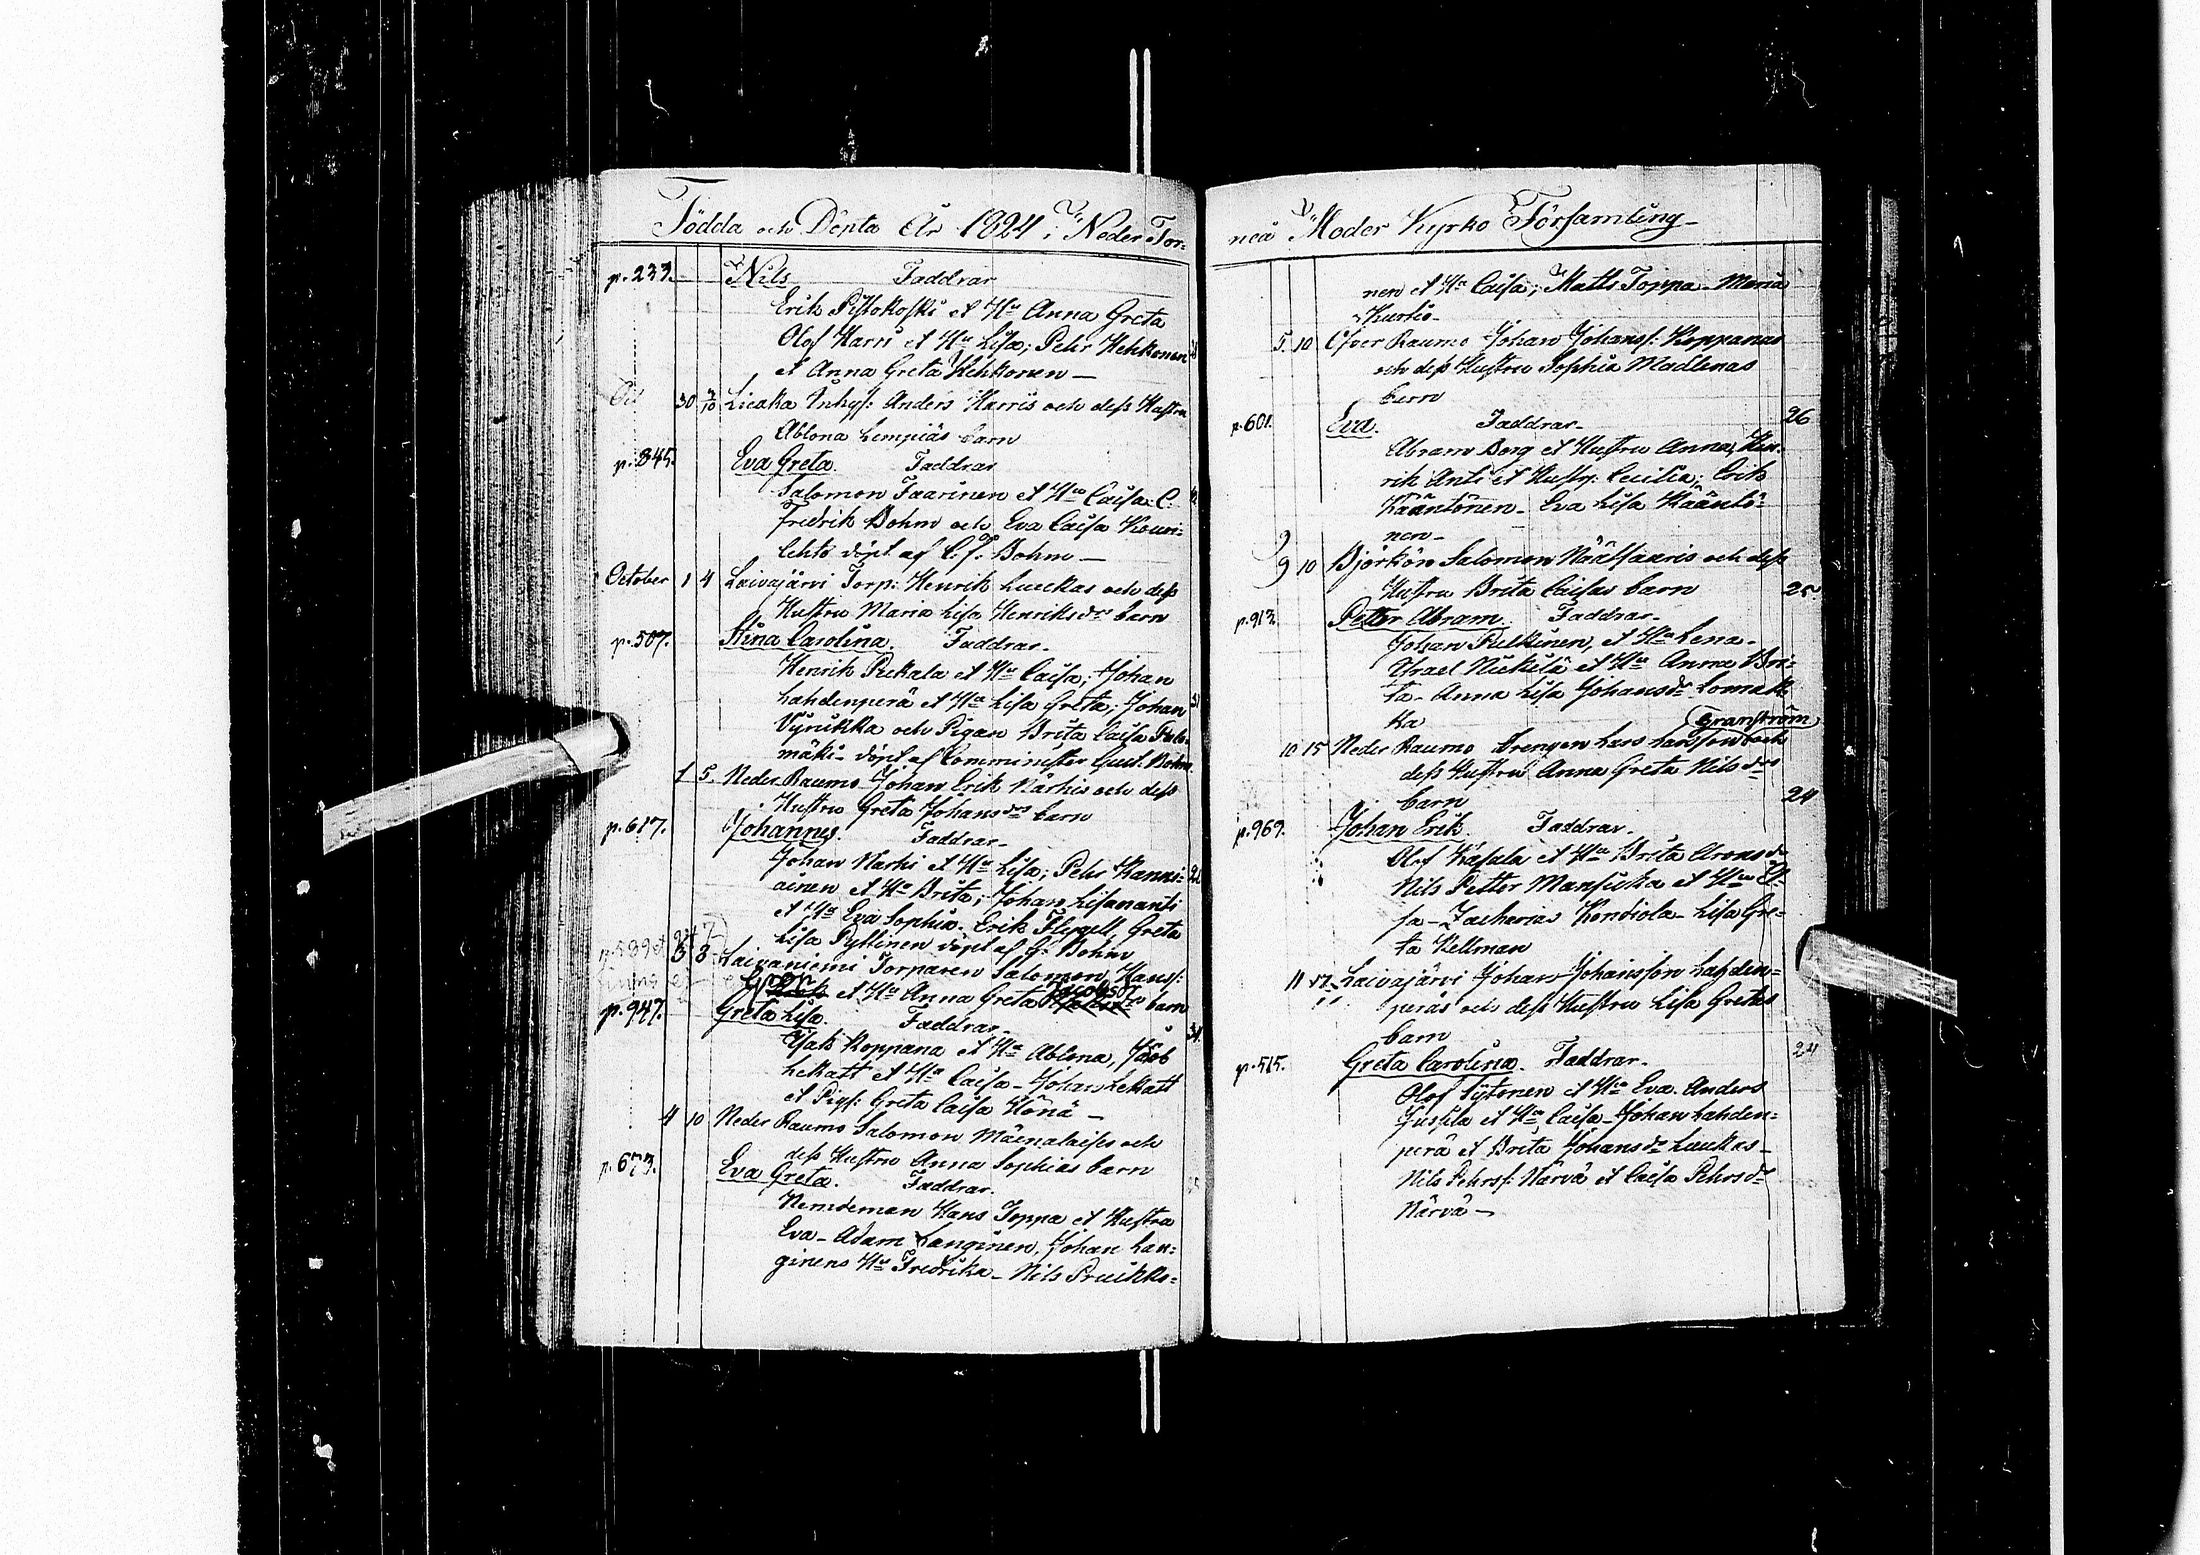 Födda och Döpta År 1824 i Neder Tor-
p. 233. Nils Faddrar
Erik Pistokoski et Hu Anna Greta
Olof Harri et Hu Lisa; Pehr Hehkonen
et Anna Greta Hehkonen —
30 3/10 Liakka Inhys: Anders Harris och dess Hustru
Ablona Lempiäs barn
p. 345. Eva Greta. Faddrar
Salomon Taarinen et Hu Caisa. C.
Fredrik Bohm och Eva Caisa Kouri-
lehto döpt af C. J. Bohm —
October 1 4 Laivajärvi Torp: Henrik Luuckas och dess
Hustru Maria Lisa Henriksdrs barn
p. 507. Stina Carolina. Faddrar.
Henrik Pukala et Hu Caisa; Johan
Lahdenperä et Hu Lisa Greta; Johan 31
Vyrikka och Pigan Brita Caisa
mäki - döpt af Comminister Gust. Bohm.
1 5. Neder Raumo Johan Erik Närhis och dess
Hustru Greta Johansdrs barn
p. 617. Johannes. Faddrar.
Johan Närhi et Hu Lisa; Pehr Kanni=
ainen et Hu Brita; Johan Lisananti
et Hu Eva Sophia. Erik Flygell, Greta
Lisa Pyttinen döpt af G. Bohm
3 8 Laivaniemi Torparen Salomon Hans:
et Hu Anna Greta Jacobsdr barn
p. 947. Greta Lisa. Faddrar. 31
Isak Koppana et Hu Ablona, Jacob
Lekatt et Hu Caisa - Johan Lekatt
et Pigs: Greta Caisa Hönä —
4 10 Neder Raumo Salomon Mäenalaises och
dess Hustru Anna Sophias barn
p. 673. Eva Greta. Faddrar.
Nemdeman Hans Toppa et Hustru
Eva - Adam Langinen, Johan Lan=
ginens Hu Fredrika - Nils Pruikko=
neå Moder Kyrko Församling
nen et Hu Caisa; Matts Toppa - Maria
Kurtio -
5. 10 Öfver Raumo Johan Johans: Koppanas
och dess Hustru Sophia Madlenas
barn
p. 601. Eva. Faddrar. 26
Abram Borg et Hustru Anna, Hen-
rik Anti et Hustr: Cecilia; Erik
Kääntönen - Eva Lisa Kääntö=
nen -
9 10 Björkön Salomon Näätsaaris och dess
Hustru Brita Caisas barn 25
p. 913. Petter Abram. Faddrar.
Johan Pulkinen, et Hu Lena -
Israel Niskilä et Hu Anna Bri-
ta - Anna Lisa Johansdr Lomak-
ka Granström
10 15 Neder Raumo Drengen Lars Larsson och
dess Hustru Anna Greta Nilsdrs
barn 24
p. 969. Johan Erik. Faddrar.
Olof Kasala et Hu Brita Aronsdr
Nils Petter Mansikka et Hu El-
sa - Zacharias Kondiola - Lisa Gre=
ta Kellman
11 17 Laivajärvi Johan Johansson Lahden=
peräs och dess Hustru Lisa Gretas
barn 24
p. 515. Greta Carolina. Faddrar.
Olof Sytonen et Hu Eva. Anders
Jussila et Hu Caisa - Johan Lahden=
perä et Brita Johansdr Luukkas -
Nils Pehrs: Närvä et Caisa Pehrsdr
Närvä —